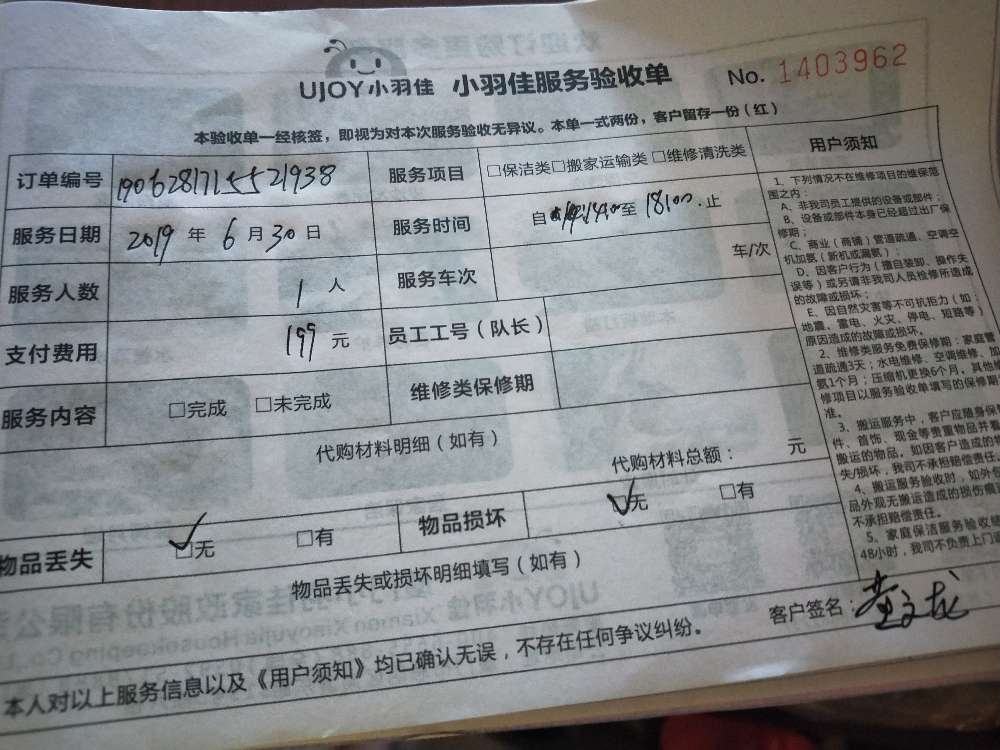 UJOY小羽佳 小羽佳服务验收单 No. 1403962
本验收单一经核签，即视为对本次服务验收无异议。本单一式两份，客户留存一份（红）
订单编号 19062817155521938 服务项目 □保洁类□搬家运输类 □维修清洗类
服务日期 2019 年 6 月 30 日 服务时间 自 至 18:00 止
服务人数 1 人 服务车次 车/次
支付费用 199 元 员工工号（队长）
服务内容 □完成 □未完成 维修类保修期
代购材料明细（如有）
代购材料总额： 元
物品丢失 ☑无 □有 物品损坏 ☑无 □有
物品丢失或损坏明细填写（如有）
客户签名：
本人对以上服务信息以及《用户须知》均已确认无误，不存在任何争议纠纷。
用户须知
1、下列情况不在维修项目的维保范
围之内：
A、非我司员工提供的设备或部件；
B、设备或部件本身已经超过出厂保
修期；
C、商业（商铺）管道疏通、空调空
机加氨（新机或漏氨）；
D、因客户行为（擅自装卸、操作失
误等）或另请非我司人员检修所造成
的故障或损坏；
E、因自然灾害等不可抗拒力（如：
地震、雷电、火灾、停电、短路等）
原因造成的故障或损坏。
2、维修类服务免费保修期：家庭管
道疏通3天；水电维修、空调维修、加
氨1个月；压缩机更换6个月，其他维
修项目以服务验收单填写的保修期
准。
3、搬运服务中，客户应随身保
件、首饰、现金等贵重物品并看
搬运的物品，如因客户造成的
失/损坏，我司不承担赔偿责任。
4、搬运服务验收时，如外包
品外观无搬运造成的损伤痕
不承担赔偿责任。
5、家庭保洁服务验收
48小时，我司不负责上门